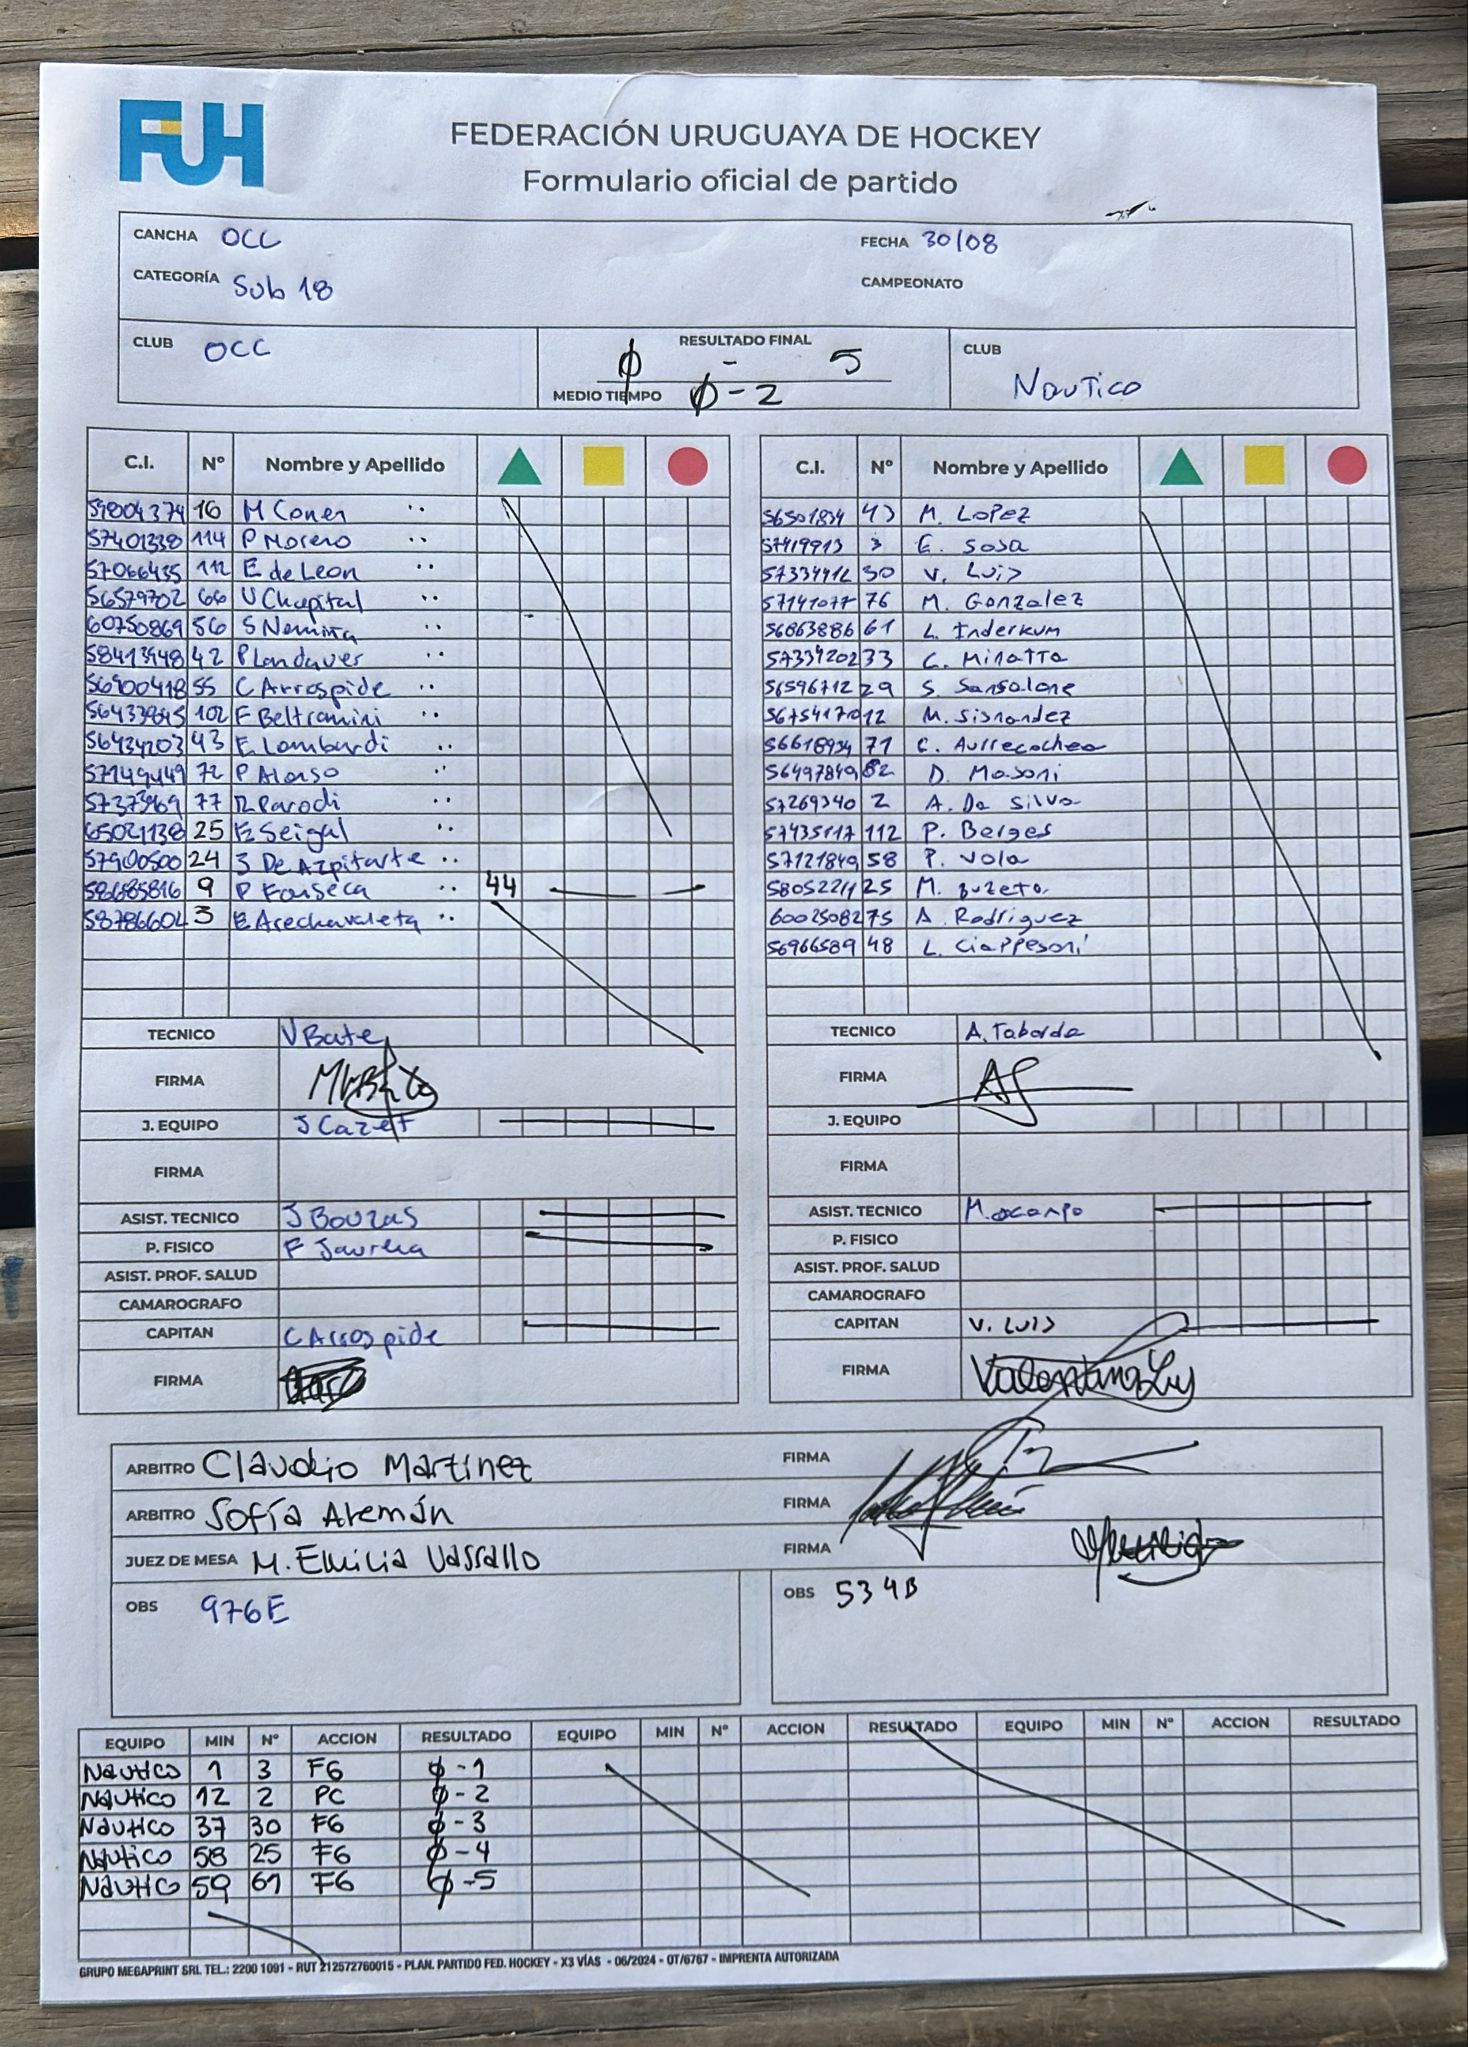 FUH
FEDERACIÓN URUGUAYA DE HOCKEY
Formulario oficial de partido
CANCHA OCC FECHA 30/08
CATEGORÍA Sub 18 CAMPEONATO
CLUB OCC RESULTADO FINAL 0 - 5 CLUB Nautico
MEDIO TIEMPO 0-2
C.I. Nº Nombre y Apellido C.I. Nº Nombre y Apellido
59804374 16 M Coner 56501834 43 M. Lopez
57401338 114 P Moreno 57419913 3 E. Sosa
57066435 112 E de Leon 57334912 30 V. Luis
56579702 66 U Chapital 57141077 76 M. Gonzalez
60750869 56 S Nemiña 56863886 61 L. Inderkum
58413948 42 P Landauer 57339202 33 C. Minatta
56900418 55 C Arrospide 56596712 29 S. Sansalone
56433845 102 F Beltramini 56754170 12 M. Sisnandez
56434203 43 E Lombardi 56618934 71 C. Aurrecochea
57149449 72 P Alonso 56497849 82 D. Masoni
57373969 77 R Parodi 57269340 2 A. Da Silva
65021138 25 E Seigal 57435117 112 P. Berges
57900500 24 J De Azpitarte 57121849 58 P. Viola
58685816 9 P Fonseca 44 58052211 25 M. Buzeta
58786602 3 E Arechavaleta 60025082 75 A. Rodriguez
56966589 48 L. Ciappesoni
TECNICO V Bate TECNICO A. Taborda
FIRMA FIRMA
J. EQUIPO J Cazet J. EQUIPO
FIRMA FIRMA
ASIST. TECNICO J Bouzas ASIST. TECNICO M. ocampo
P. FISICO F Jaurena P. FISICO
ASIST. PROF. SALUD ASIST. PROF. SALUD
CAMAROGRAFO CAMAROGRAFO
CAPITAN C Arrospide CAPITAN V. Luis
FIRMA FIRMA Valentina Luis
ARBITRO Claudio Martínez FIRMA
ARBITRO Sofía Alemán FIRMA
JUEZ DE MESA M. Emilia Vassallo FIRMA
OBS 976E OBS 534B
EQUIPO MIN Nº ACCION RESULTADO EQUIPO MIN Nº ACCION RESULTADO EQUIPO MIN Nº ACCION RESULTADO
Náutico 1 3 FG 0-1
Náutico 12 2 PC 0-2
Náutico 37 30 FG 0-3
Náutico 58 25 FG 0-4
Náutico 59 61 FG 0-5
GRUPO MEGAPRINT SRL TEL.: 2200 1091 - RUT 212572760015 - PLAN. PARTIDO FED. HOCKEY - X3 VÍAS - 06/2024 - OT/6767 - IMPRENTA AUTORIZADA